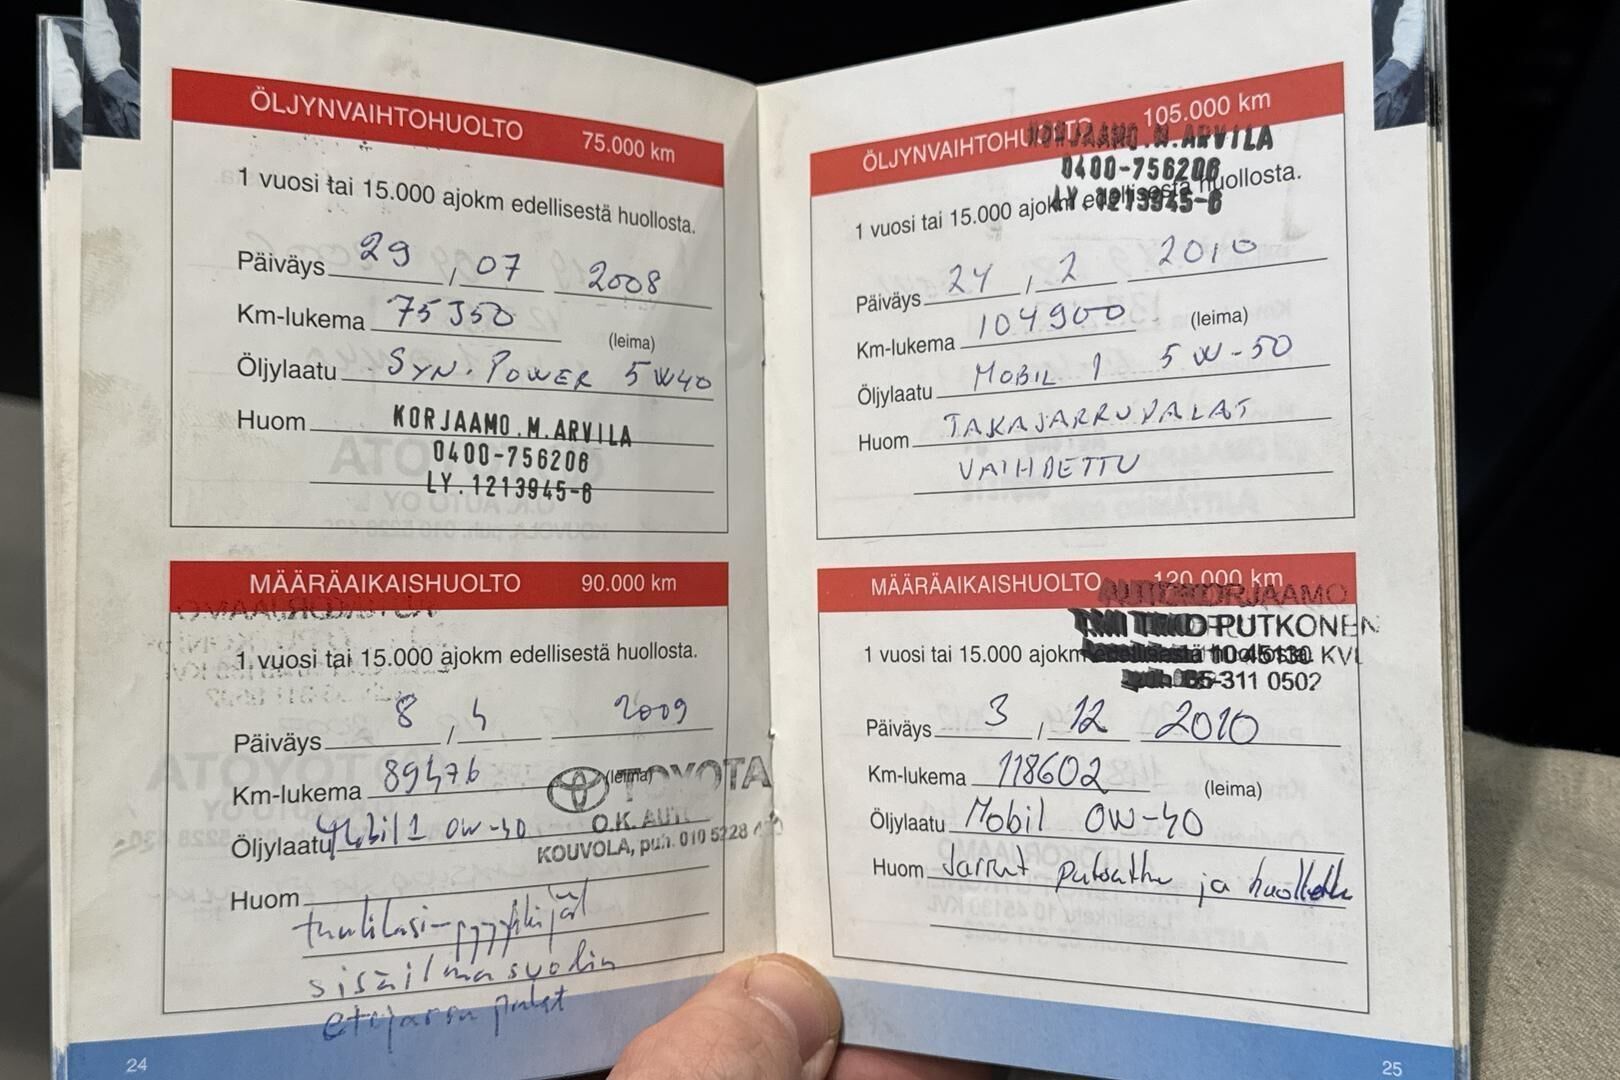 ÖLJYNVAIHTOHUOLTO 75.000 km
1 vuosi tai 15.000 ajokm edellisestä huollosta.
Päiväys 29 , 07 2008
Km-lukema 75350
(leima)
Öljylaatu SYN. POWER 5W40
Huom KORJAAMO.M.ARVILA
0400-756206
LY.1213945-6
MÄÄRÄAIKAISHUOLTO 90.000 km
1 vuosi tai 15.000 ajokm edellisestä huollosta.
Päiväys 8 / 4 2009
Km-lukema 89476
(leima) TOYOTA
Öljylaatu Mobil 1 0W-40
O.K. AUTO
KOUVOLA, puh. 010 5228
Huom
tuulilasi-pyyhkijät
sisäilmasuodin
etujarrupalat
24
ÖLJYNVAIHTOHUOLTO 105.000 km
KORJAAMO.M.ARVILA
0400-756206
LY.1213945-6
1 vuosi tai 15.000 ajokm edellisestä huollosta.
Päiväys 24 , 2 2010
Km-lukema 104900
(leima)
Öljylaatu MOBIL 1 5W-50
Huom TAKAJARRUPALAT
VAIHDETTU
MÄÄRÄAIKAISHUOLTO 120.000 km
AUTOKORJAAMO
PUTKONEN
1 vuosi tai 15.000 ajokm edellisestä huollosta.
10 45130 KVL
05-311 0502
Päiväys 3 , 12 2010
Km-lukema 118602
(leima)
Öljylaatu Mobil 0W-40
Huom Jarrut puhdettu ja huollettu
25